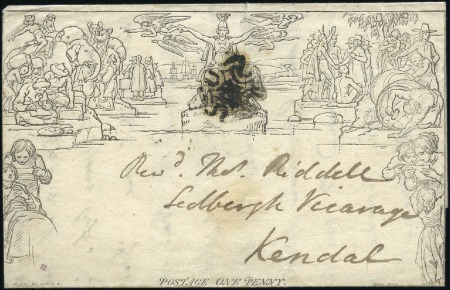 Revd. Thos. Riddell
Sedbergh Vicarage
Kendal
POSTAGE ONE PENNY.